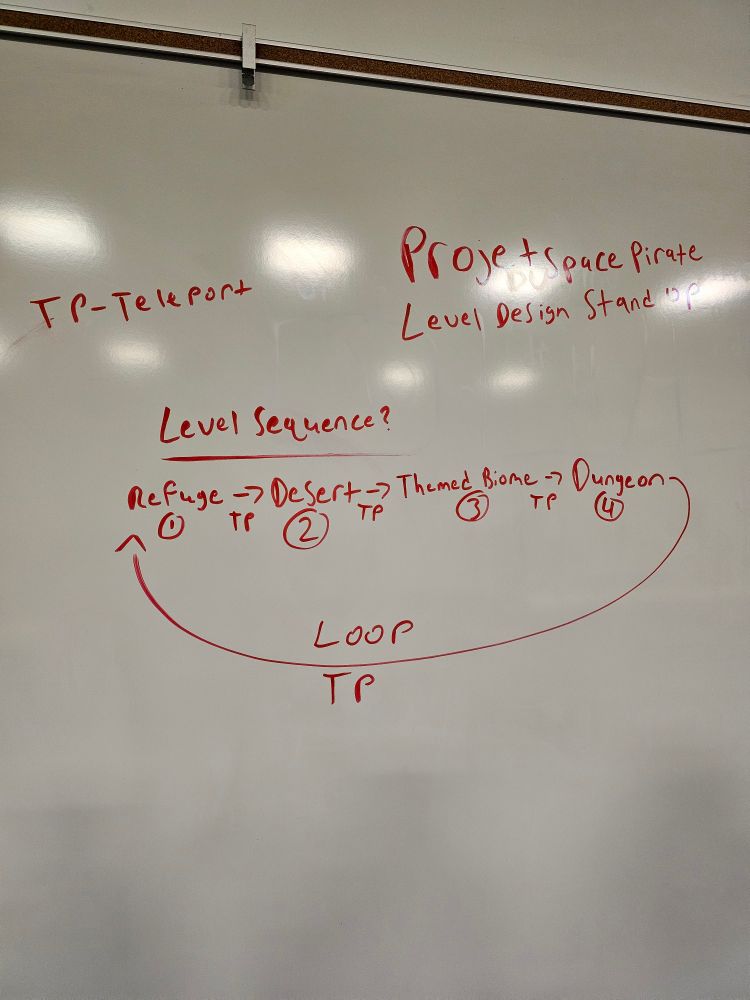 Projet Space Pirate
Level Design Stand up
TP-Teleport
Level Sequence?
Refuge -> Desert -> Themed Biome -> Dungeon
① TP ② TP ③ TP ④
Loop
TP